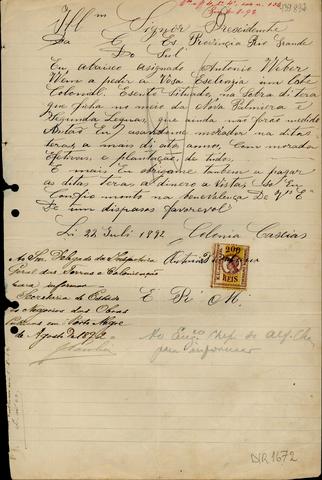 Illm Signor Presiddente
Da C. Es. Provinçia Rio Grande
Do Sul
Eu abaisco asignado Antonio Weber
Wem a peder a Vosa Escelenzia um Lote
Colonal. Escrito Situado, na Sobra di tera
que ficha no meio da Nova Palmiera e
Segunda Legua, que ainda não foráo medido
Eu morador na ditas
teras, a mais di ato annos, Com morada
Efetivas. e plantação, de tudos.
E mais Eu obrigome tambem a pagar
as ditas teras a dinero a Vistas, Se Eu
Comfio monto na benevalença De Vª Eª
De um dispases favorevol
Li 22 Juli 1892 Colonia Cascias
Antonio
E. R. M.
200
REIS
Ao Snr. Delegado da Inspectoria
Geral das Terras e Colonisação
para informar
Secretaria de Estado
de Negocios das Obras
Publicas em Porto Alegre
de Agosto de 1892
Ao Engº Chefe
para informar
DIR 1672